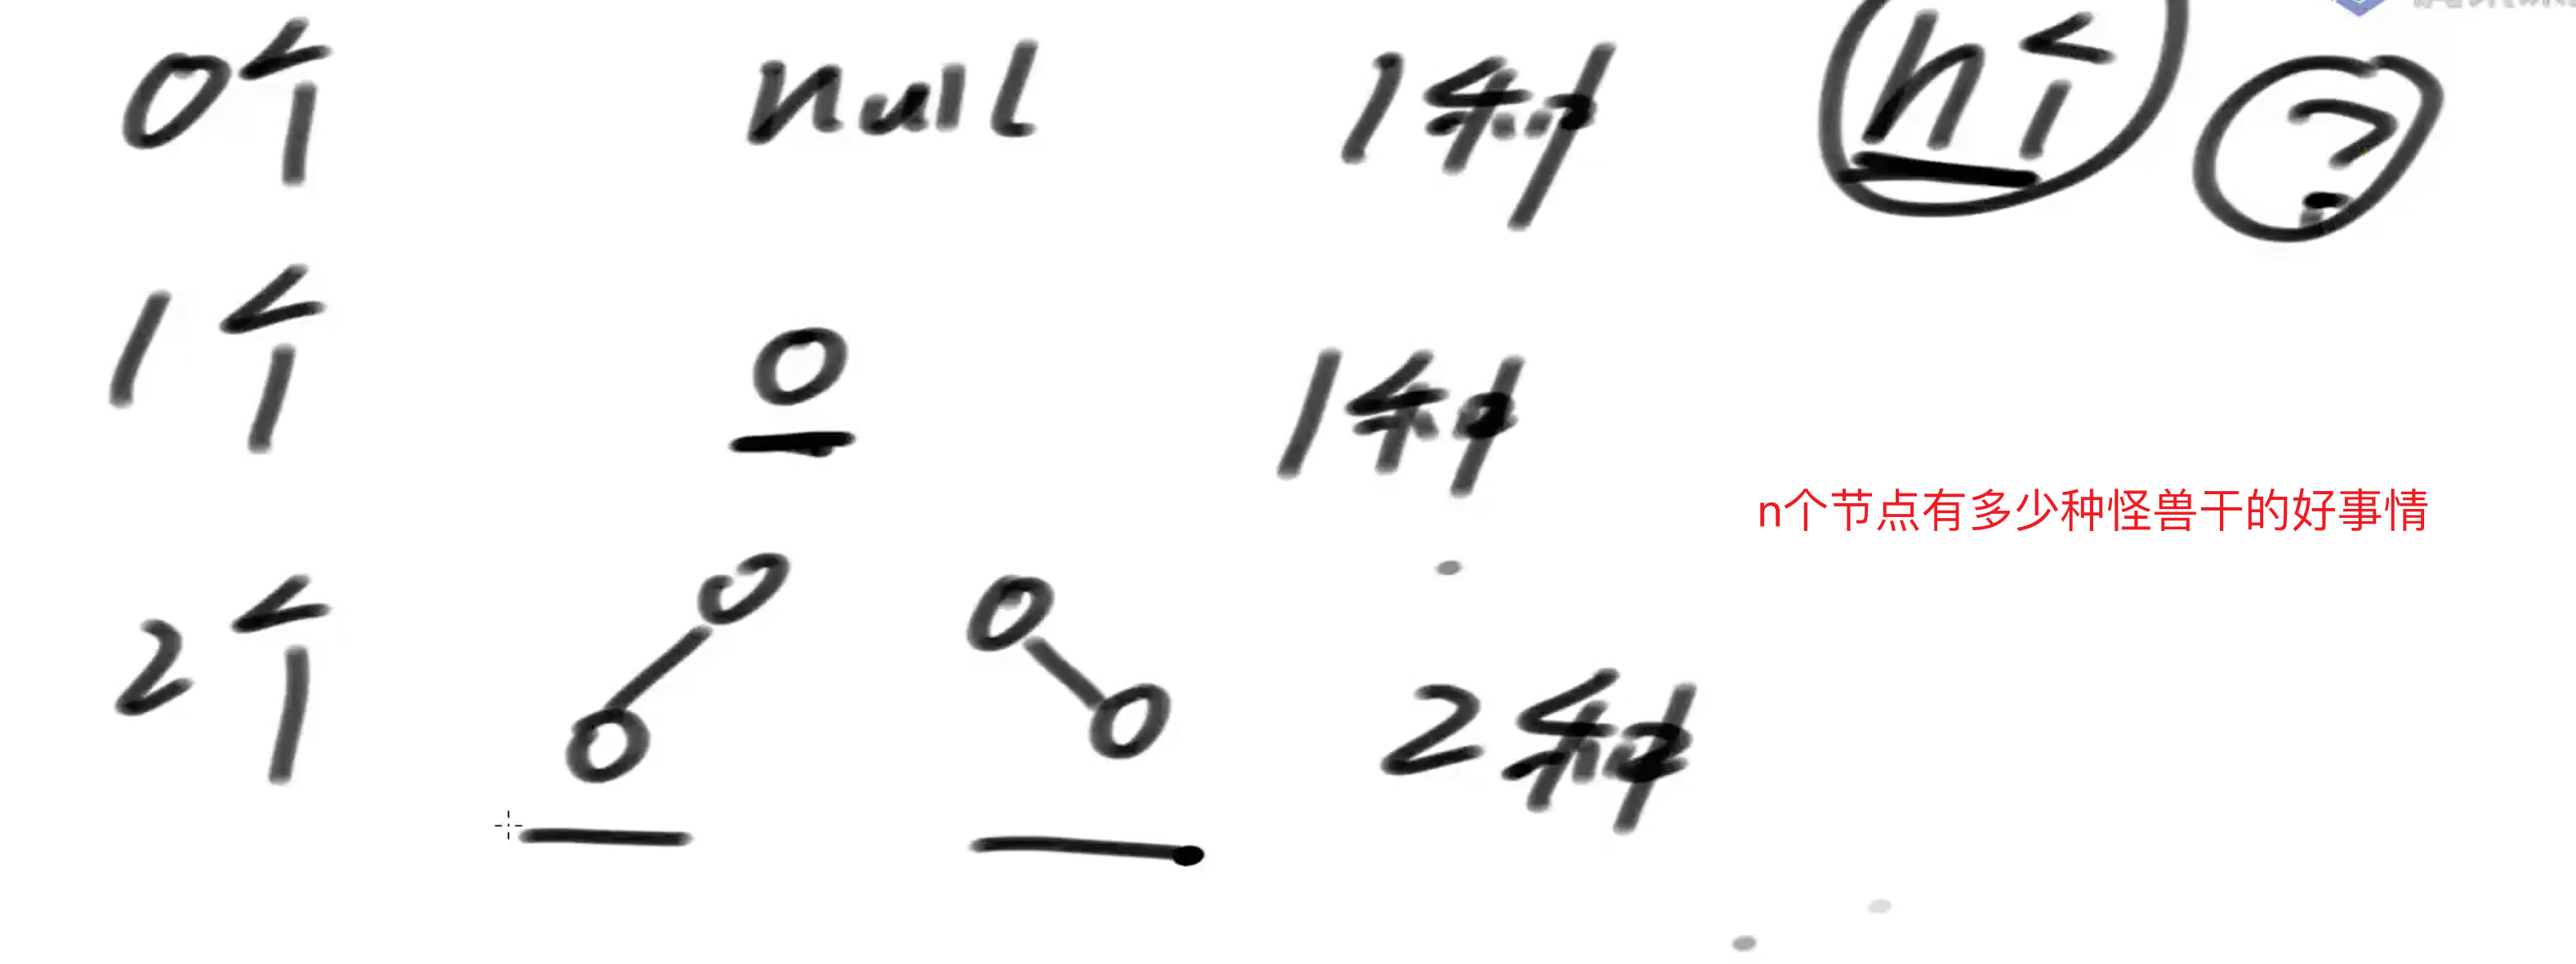 0个 null 1种 n个 ?
1个 1种
n个节点有多少种怪兽干的好事情
2个 2种